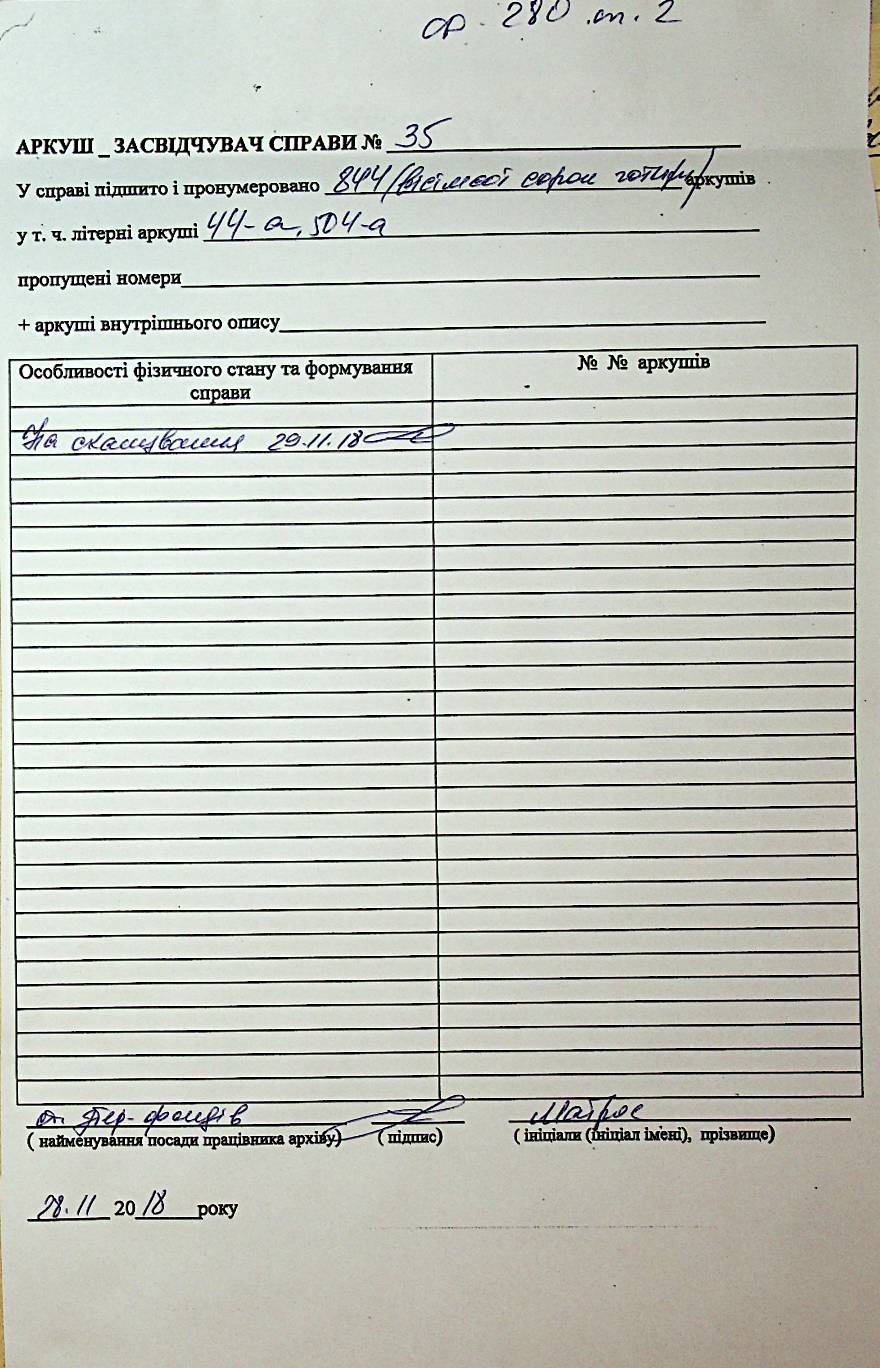 ф. 280 оп. 2
АРКУШ _ ЗАСВІДЧУВАЧ СПРАВИ № 35
У справі підшито і пронумеровано 844 /вісімсот сорок чотири/ аркушів
у т. ч. літерні аркуші 44-а, 504-а
пропущені номери
+ аркуші внутрішнього опису
Особливості фізичного стану та формування справи
№ № аркушів
На сканування 29.11.18
фондів Матрос
( найменування посади працівника архіву) ( підпис) ( ініціали (ініціал імені), прізвище)
28.11 2018 року